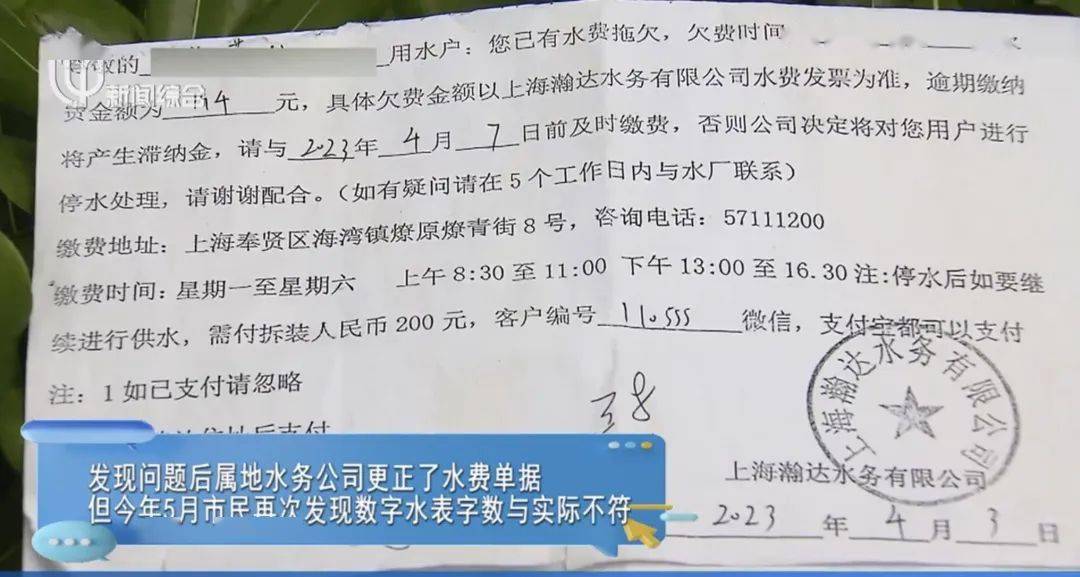 用水户：您已有水费拖欠，欠费时间
新闻综合
费金额为 元，具体欠费金额以上海瀚达水务有限公司水费发票为准，逾期缴纳
将产生滞纳金，请与 2023 年 4 月 7 日前及时缴费，否则公司决定将对您用户进行
停水处理，请谢谢配合。（如有疑问请在 5 个工作日内与水厂联系）
缴费地址：上海奉贤区海湾镇燎原燎青街 8 号，咨询电话：57111200
缴费时间：星期一至星期六 上午 8:30 至 11:00 下午 13:00 至 16.30 注:停水后如要继
续进行供水，需付拆装人民币 200 元，客户编号 110555 微信，支付宝都可以支付
注：1 如已支付请忽略
上海瀚达水务有限公司
上海瀚达水务有限公司
2023 年 4 月 3 日
发现问题后属地水务公司更正了水费单据
但今年5月市民再次发现数字水表字数与实际不符